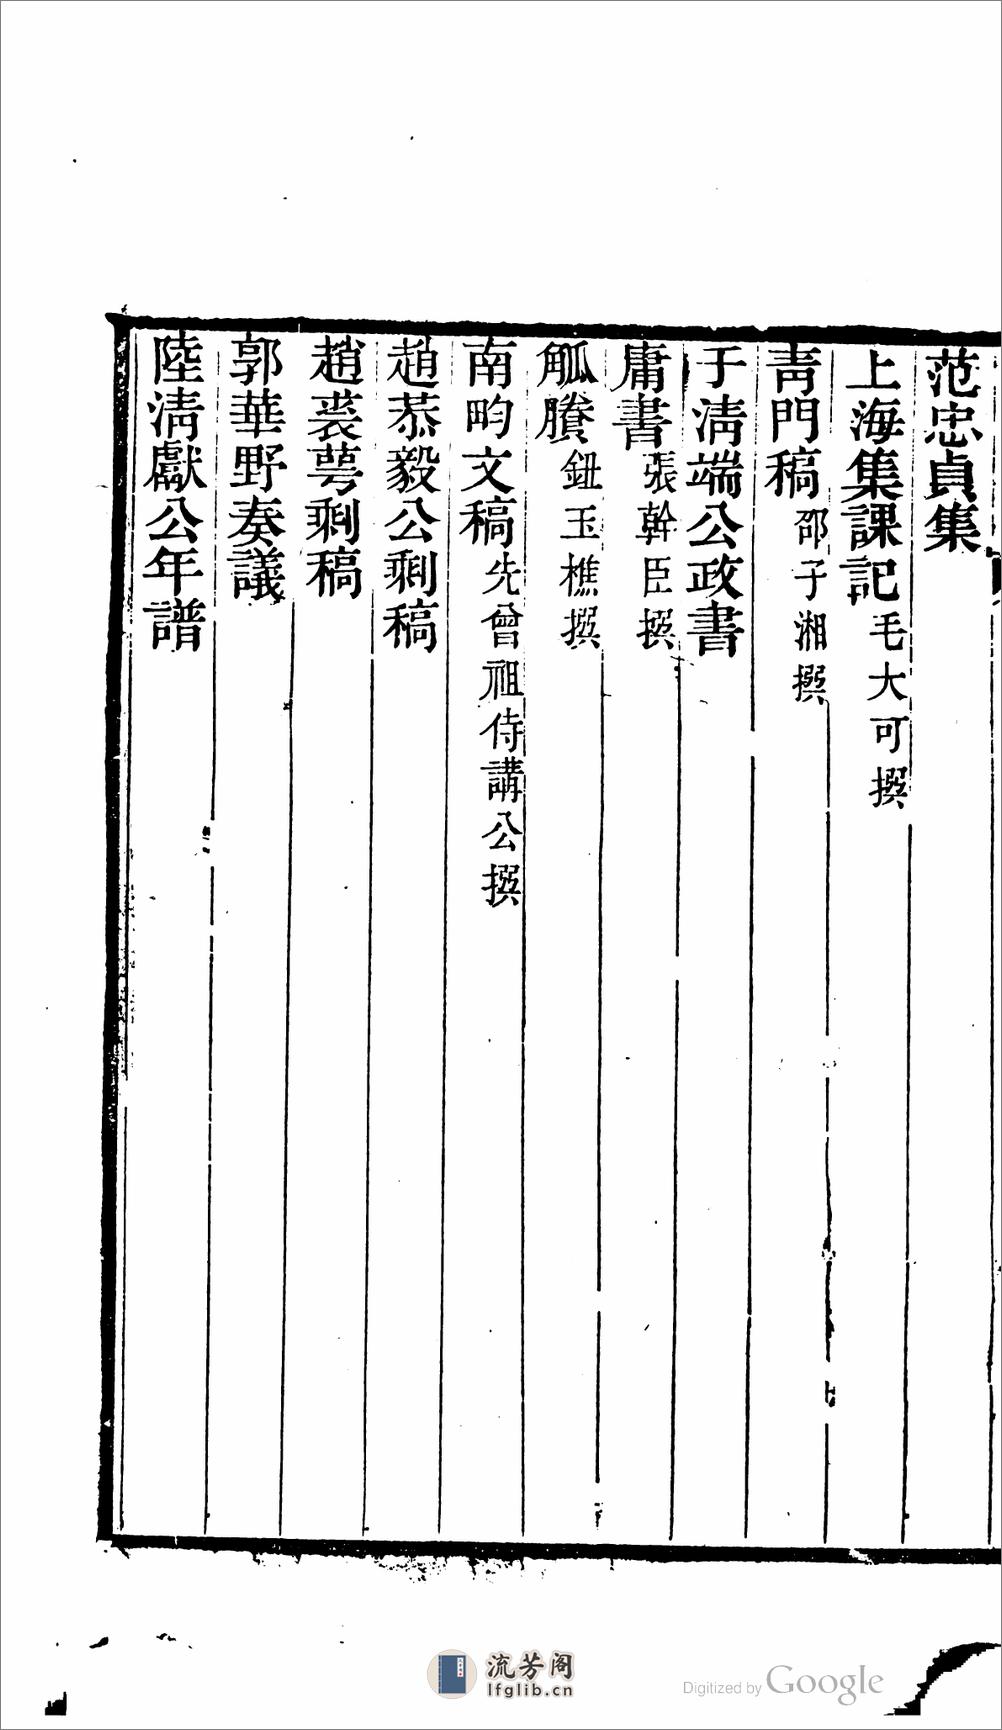 范忠貞集
上海集課記毛大可撰
青門稿邵子湘撰
于清端公政書
庸書張幹臣撰
觚賸鈕玉樵撰
南畇文稿先曾祖侍講公撰
趙恭毅公剩稿
趙裘萼剩稿
郭華野奏議
陸清獻公年譜
流芳阁
lfglib.cn
Digitized by Google